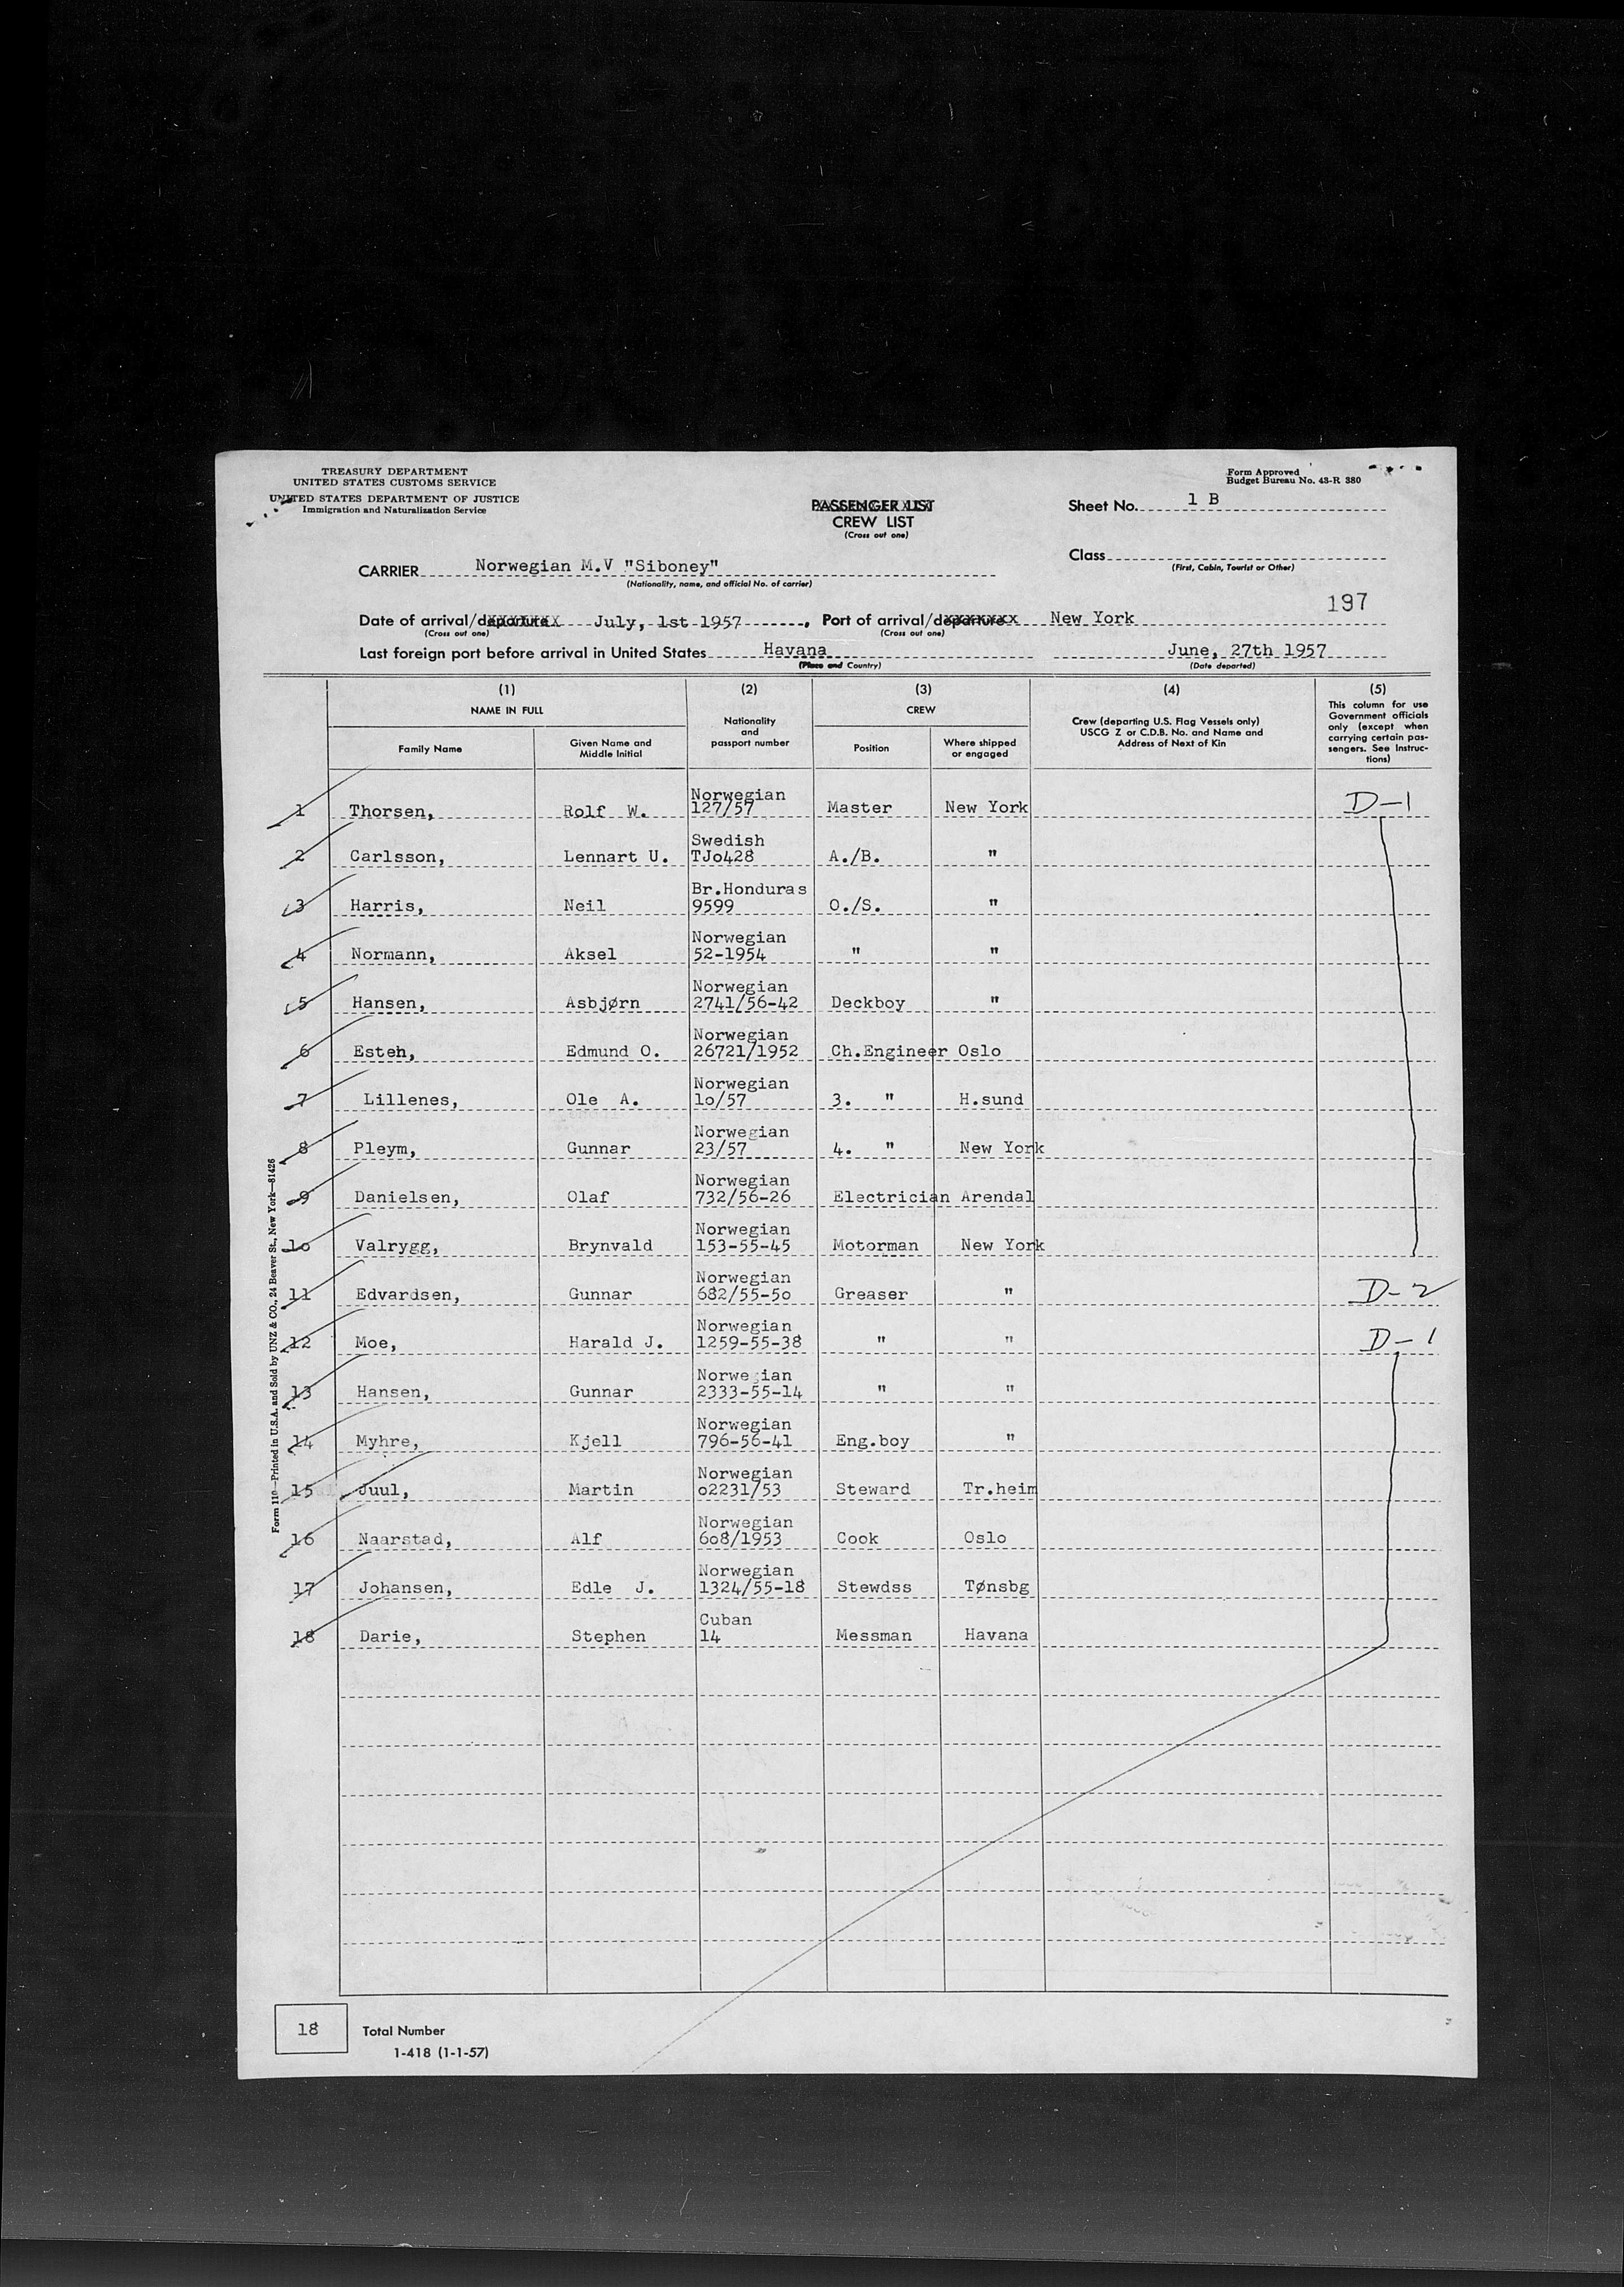 TREASURY DEPARTMENT
UNITED STATES CUSTOMS SERVICE
UNITED STATES DEPARTMENT OF JUSTICE
Immigration and Naturalization Service
Form Approved
Budget Bureau No. 43-R 380
PASSENGER LIST
CREW LIST
(Cross out one)
Sheet No. 1 B
Class
(First, Cabin, Tourist or Other)
CARRIER Norwegian M.V "Siboney"
(Nationality, name, and official No. of carrier)
197
Date of arrival/departure July, 1st 1957, Port of arrival/departure New York
(Cross out one) (Cross out one)
Last foreign port before arrival in United States Havana June, 27th 1957
(Place and Country) (Date departed)
(1) (2) (3) (4) (5)
NAME IN FULL
Family Name
Given Name and Middle Initial
Nationality and passport number
CREW
Position
Where shipped or engaged
Crew (departing U.S. Flag Vessels only) USCG Z or C.D.B. No. and Name and Address of Next of Kin
This column for use Government officials only (except when carrying certain passengers. See Instructions)
1 Thorsen, Rolf W. Norwegian 127/57 Master New York D-1
2 Carlsson, Lennart U. Swedish TJo428 A./B. "
3 Harris, Neil Br.Honduras 9599 O./S. "
4 Normann, Aksel Norwegian 52-1954 " "
5 Hansen, Asbjørn Norwegian 2741/56-42 Deckboy "
6 Esteh, Edmund O. Norwegian 26721/1952 Ch.Engineer Oslo
7 Lillenes, Ole A. Norwegian lo/57 3. " H.sund
8 Pleym, Gunnar Norwegian 23/57 4. " New York
9 Danielsen, Olaf Norwegian 732/56-26 Electrician Arendal
lo Valrygg, Brynvald Norwegian 153-55-45 Motorman New York
11 Edvardsen, Gunnar Norwegian 682/55-5o Greaser " D-2
12 Moe, Harald J. Norwegian 1259-55-38 " " D-1
13 Hansen, Gunnar Norwegian 2333-55-14 " "
14 Myhre, Kjell Norwegian 796-56-41 Eng.boy "
15 Juul, Martin Norwegian o2231/53 Steward Tr.heim
16 Naarstad, Alf Norwegian 6o8/1953 Cook Oslo
17 Johansen, Edle J. Norwegian 1324/55-18 Stewdss Tønsbg
18 Darie, Stephen Cuban 14 Messman Havana
Form 110—Printed in U.S.A. and Sold by UNZ & CO., 24 Beaver St., New York—81426
18 Total Number
1-418 (1-1-57)